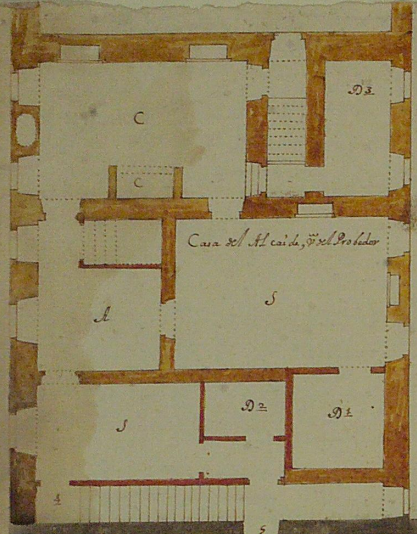 C
D3
C
Casa del Alcaide, y del Probedor
S
A
D2
D1
S
4
5